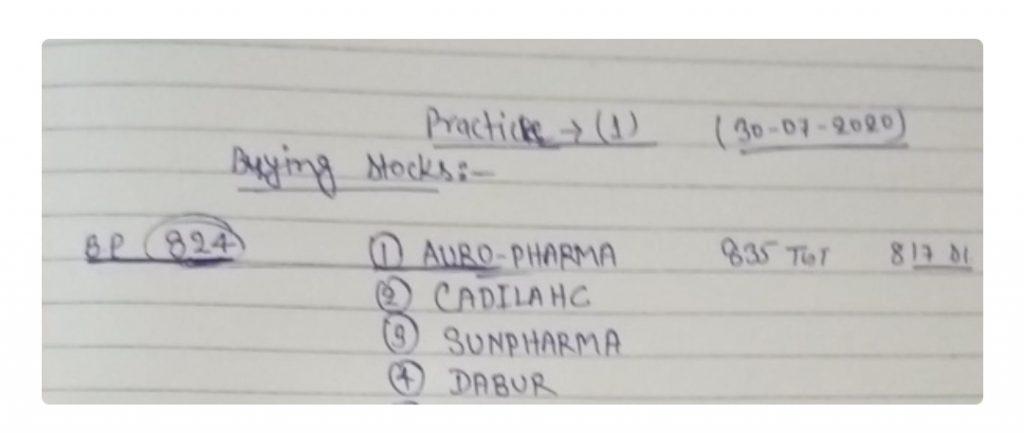 Practice → (1) (30-07-2020)
Buying Stocks:-
BP 824 ① AURO-PHARMA 835 TGT 817 Sl
② CADILAHC
③ SUNPHARMA
④ DABUR